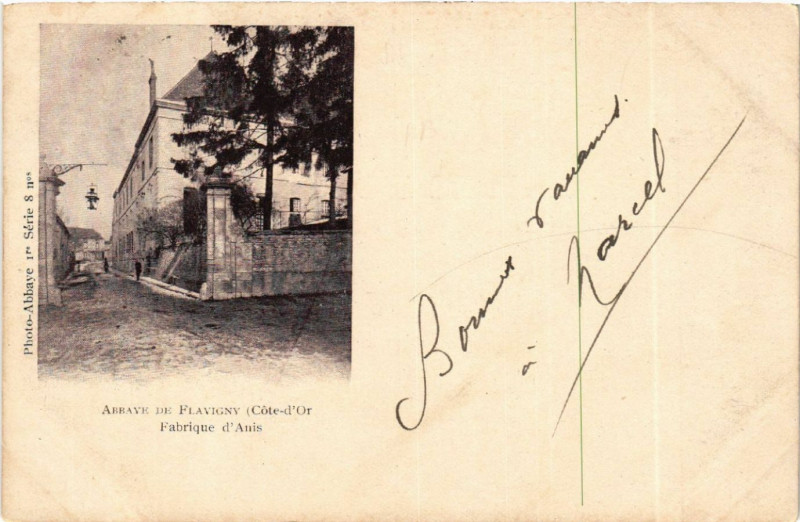 Photo-Abbaye 1re Série 8 nos
ABBAYE DE FLAVIGNY (Côte-d'Or
Fabrique d'Anis
Bonnes vacances
à Marcel